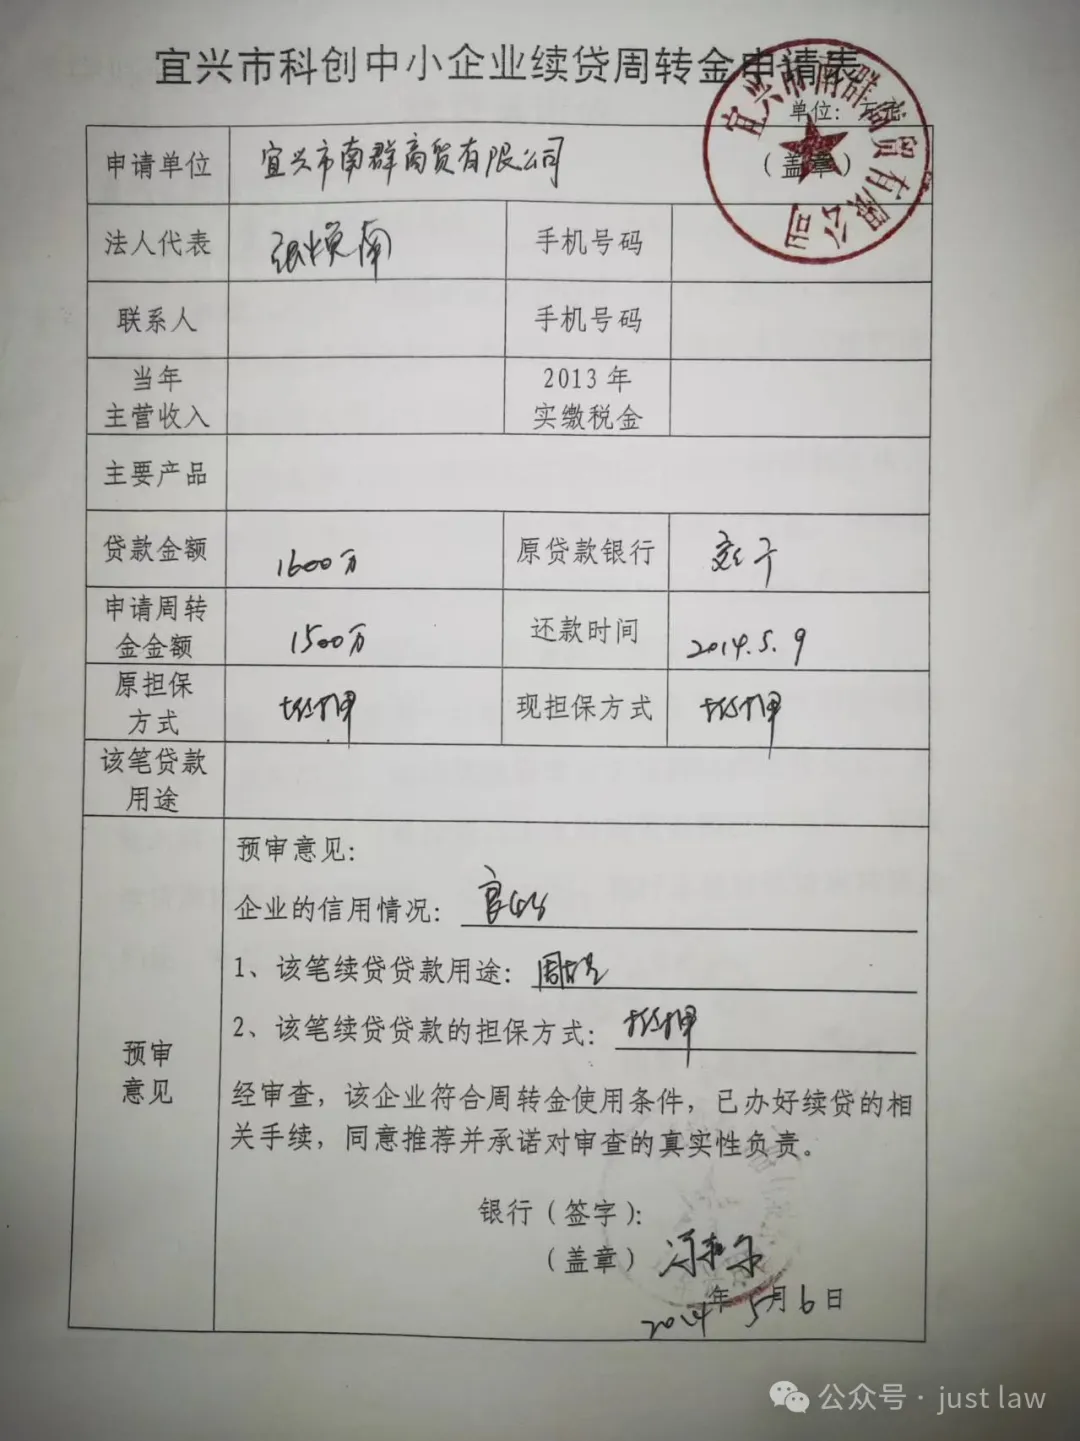 宜兴市科创中小企业续贷周转金申请表
单位：万元
申请单位 宜兴市南群商贸有限公司 （盖章）
宜兴市南群商贸有限公司
法人代表 手机号码
联系人 手机号码
当年 2013 年
主营收入 实缴税金
主要产品
贷款金额 1600万 原贷款银行
申请周转
金金额 1500万 还款时间 2014.5.9
原担保
方式 抵押 现担保方式 抵押
该笔贷款
用途
预审意见：
企业的信用情况：
1、该笔续贷贷款用途：
2、该笔续贷贷款的担保方式： 抵押
预审
意见
经审查，该企业符合周转金使用条件，已办好续贷的相
关手续，同意推荐并承诺对审查的真实性负责。
银行（签字）：
（盖章）
2014年5月6日
公众号 · just law